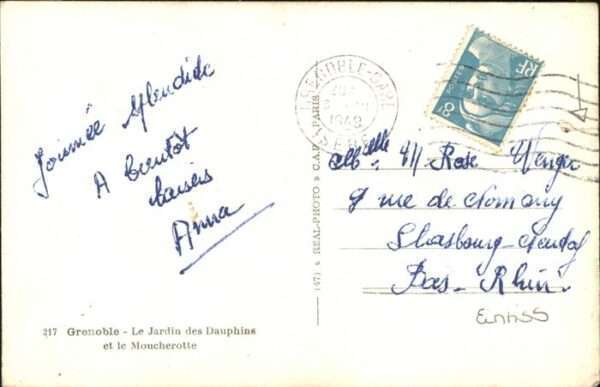 Journée splendide
A bientôt
baisers
Anna
217 Grenoble - Le Jardin des Dauphins
et le Moucherotte
(47) REAL-PHOTO C.A.P. PARIS
GRENOBLE-GARE
1949
ISERE
RF
POSTES
8
Rose Wenger
9 rue de
Strasbourg-Neudorf
Bas-Rhin